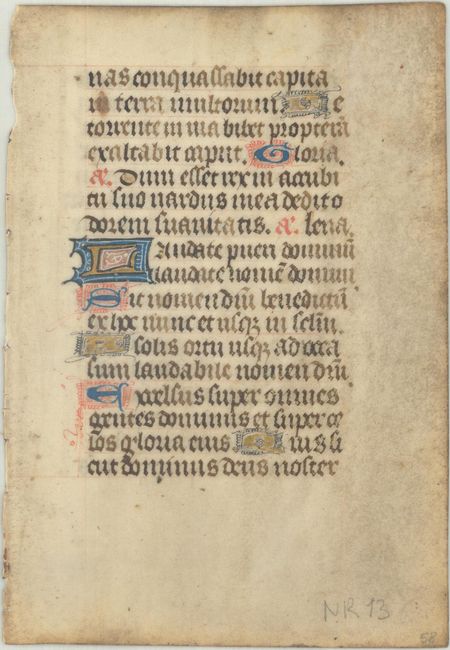 nas conquassabit capita
in terra multorum. De
torrente in via bibet propterea
exaltabit caput. Gloria.
añ. Dum esset rex in acubi
tu suo nardus mea dedit o
dorem suavitatis. añ. leua.
Laudate pueri dominũ
laudate nomẽ domini
Sit nomen dñi benedictũ
ex hoc nunc et usqz in sclm̃.
A solis ortu usqz ad occa
sum laudabile nomen dñi
Excelsus super omnes
gentes dominus et super ce
los gloria eius Quis si
cut dominus deus noster
NR 13
58